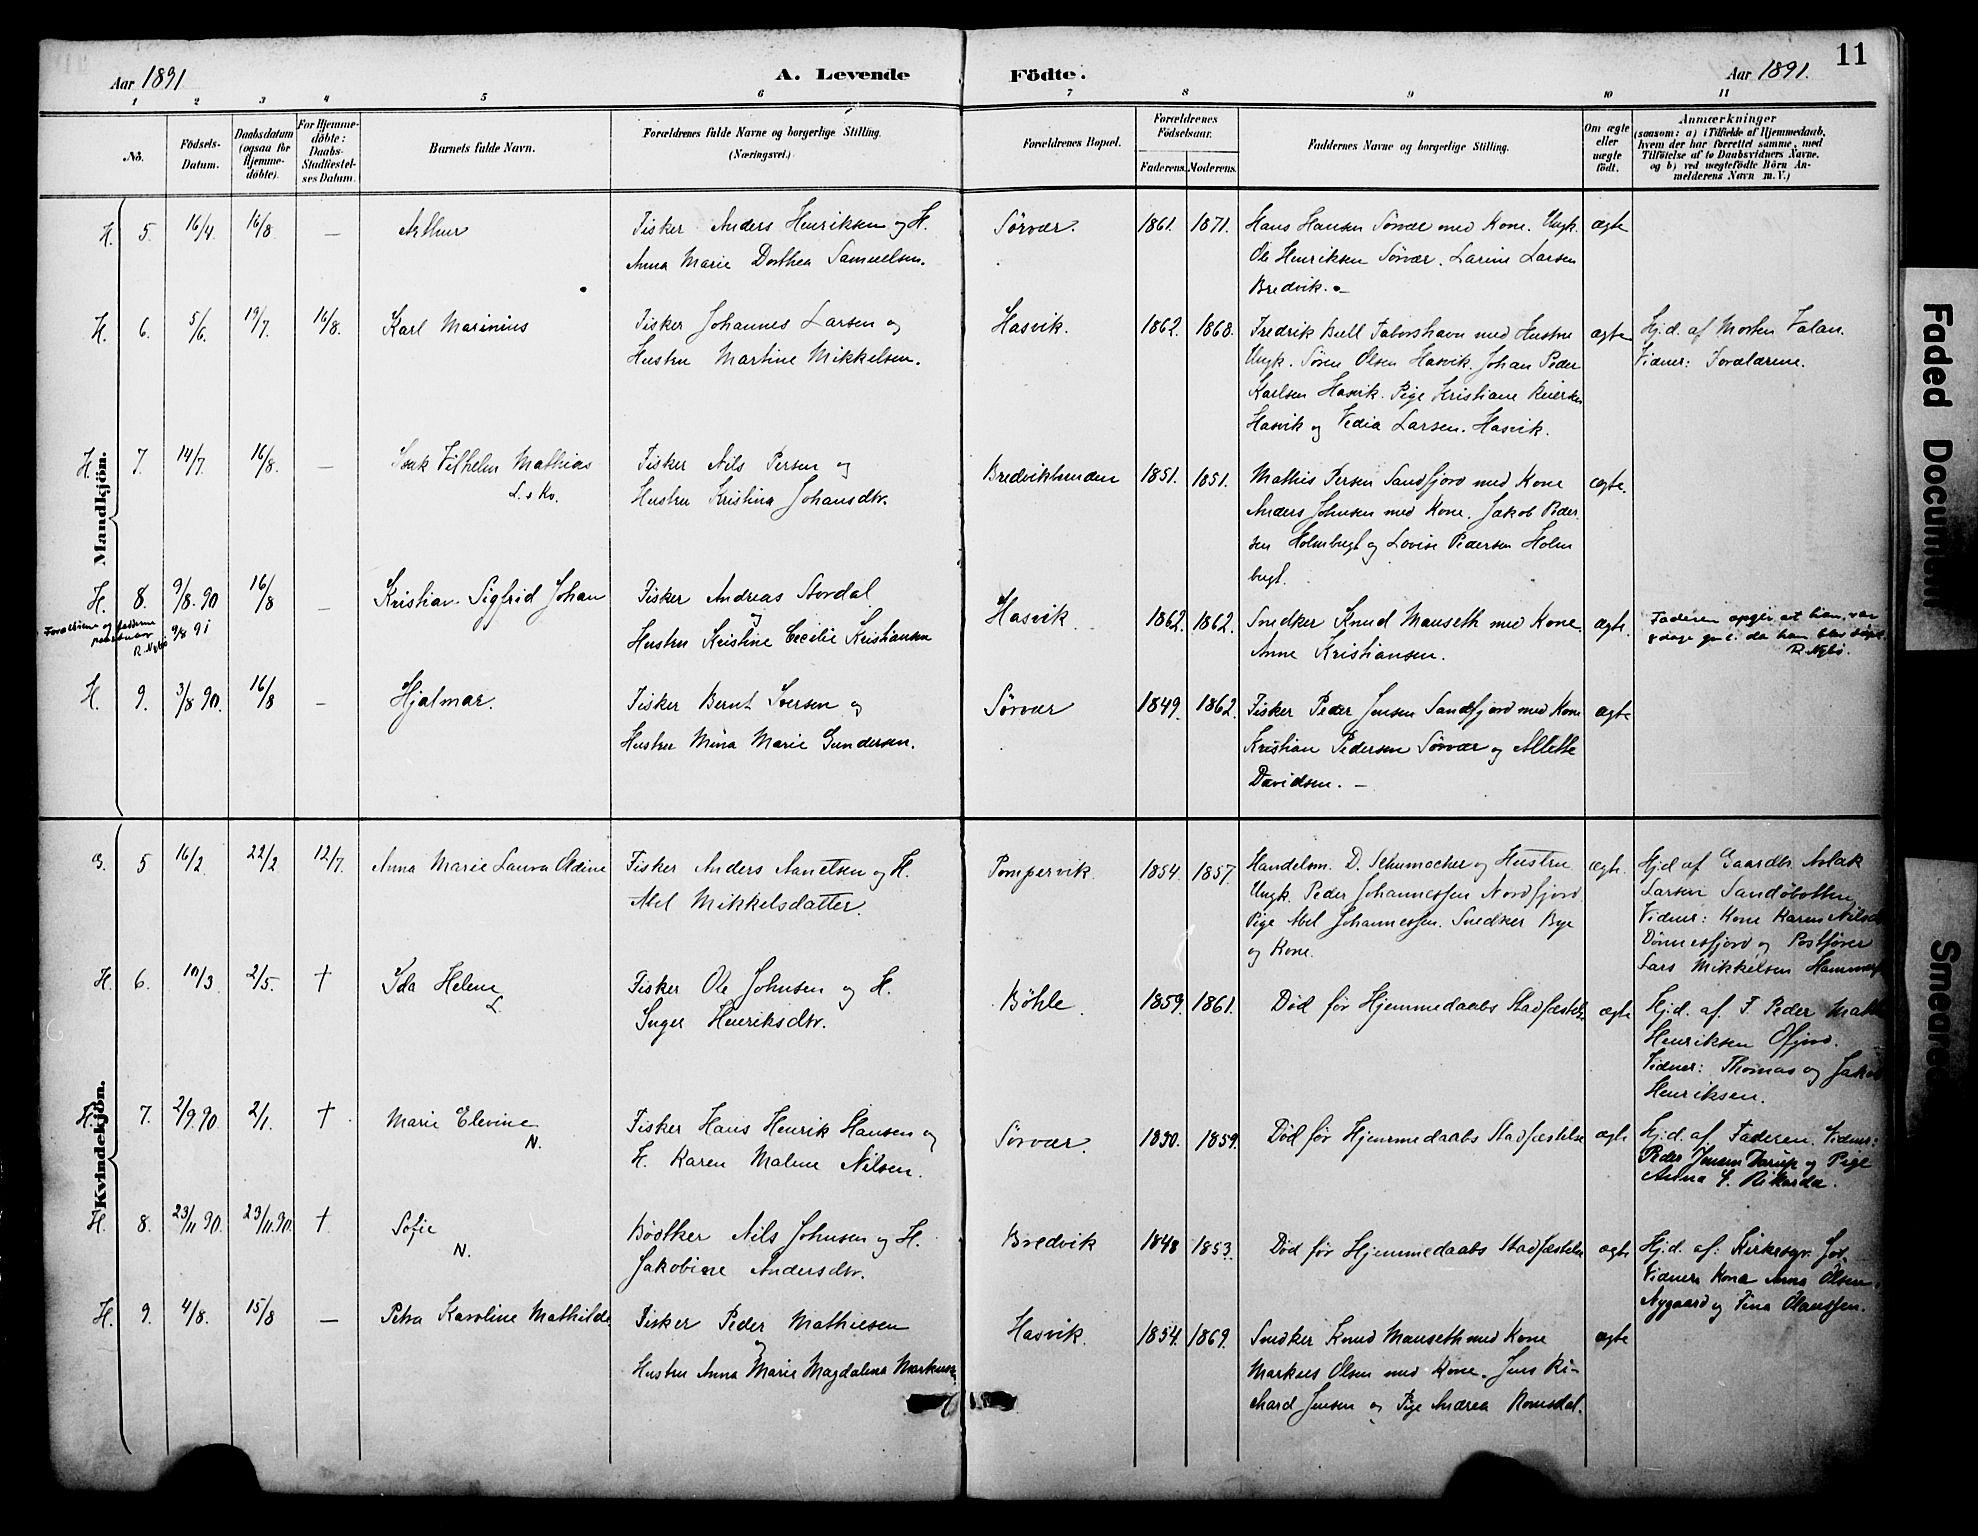 Aar 1891 A. Levende Födte. Aar 1891. 11
1 2 3 4 5 6 7 8 9 10 11
No.
Födsels-Datum.
Daabsdatum (ogsaa for Hjemme-döbte).
For Hjemme-döbte: Daabs-Stadfæstel-ses Datum.
Barnets fulde Navn.
Forældrenes fulde Navne og borgerlige Stilling. (Næringsvei.)
Forældrenes Bopæl.
Forældrenes Födselsaar.
Faderens. Moderens.
Faddernes Navne og borgerlige Stilling.
Om ægte eller uægte födt.
Anmærkninger
(saasom: a) i Tilfælde af Hjemmedaab,
hvem der har forrettet samme, med
Tilföielse af to Daabsvidners Navne.
og b) ved uægtefödte Börn An-
melderens Navn m. V.)
Mandkjön.
H. 5. 16/4 16/8 — Arthur
Fisker Anders Henriksen og H.
Anna Marie Dorthea Samuelsen.
Sørvær. 1861. 1871.
Hans Hansen Sørvær med Kone. Ungk.
Ole Henriksen Sørvær. Larine Larsen
Bredvik. —
ægte
H. 6. 5/6. 19/7. 16/8. Karl Marinius
Fisker Johannes Larsen og
Hustru Martine Mikkelsen.
Hasvik. 1862. 1868.
Fredrik Bull Faborshavn med Hustru
Ungk. Søren Olsen Hasvik. Johan Peder
Karlsen Hasvik. Pige Kristiane
Hasvik og Vedia Larsen. Hasvik.
ægte
Hj.d. af Morten Valan.
Vidner: Forældrene.
H. 7. 14/7. 16/8. — Isak Vilhelm Mathias
L. s Kv.
Fisker Nils Persen og
Hustru Kristina Johansdtr.
Bredvikbunden 1851. 1851.
Mathis Persen Sandfjord med Kone
Anders Johnsen med Kone. Jakob Peder
sen Holmbugt og Lovise Pedersen Holm
bugt.
ægte.
H. 8. 9/8. 90 16/8 — Kristian Sigfrid Johan
9/8 91
Forældrene og fadderne
R. Nybø
Fisker Andreas Stordal
og
Hustru Kristine Cecilie Kristiansen
Hasvik 1862. 1862.
Snedker Knud Mauseth med Kone
Anne Kristiansen.
ægte.
Faderen opgir, at han var
8 dage gml. da han blev døpt
R. Nybø.
H. 9. 3/8 90. 16/8 — Hjalmar.
Fisker Bernt Iversen og
Hustru Mina Marie Gundersen.
Sørvær 1849. 1862.
Fisker Peder Jensen Sandfjord med Kone
Kristian Pedersen Sørvær og Alette
Davidsen. —
ægte
Kvindekjön.
5 16/2. 22/2 12/7. Anna Marie Laura Oldine
Fisker Anders Anetsen og H.
Abel Mikkelsdatter.
Pompervik. 1854. 1857.
Handelsm. D. Schumacher og Hustru
Ungk. Peder Johannessen Nordfjord
Pige Abel Johannessen. Snedker Bye
og Kone.
ægte.
Hj.d af Gaardbr. Aslak
Larsen Sandøbotten
Vidner: Kone Karen Nilsd
Dönnesfjord og Postfører
Lars Mikkelsen Hammerf
H. 6. 10/3 2/5. † Ida Helena
L.
Fisker Ole Johnsen og H.
Inger Henriksdtr.
Bøhle 1859. 1861.
Død før Hjemmedaabs Stadfæstelse
ægte
Hj.d. af. F. Peder Math
Henriksen Ofjord.
Vidner: Thomas og Jakob
Henriksen.
H. 7. 2/9. 90 2/1. † Marie Elevine
N.
Fisker Hans Henrik Hansen og
H. Karen Malene Nilsen.
Sørvær. 1850. 1859.
Død før Hjemmedaabs Stadfæstelse
ægte
Hj.d. af Faderen. Vidner:
Peder Jensen og Pige
Anna E. Rikarda.
H. 8. 23/11 90. 23/11.90. † Sofie
N.
Bødtker Nils Johnsen og H.
Jakobine Andersdtr.
Bredvik 1848 1853.
Død før Hjemmedaabs Stadfæstelse
ægte
Hj.d. af: Kirkesgr. Joh.
Vidner: Kone Anna Olsen
Nygaard og Fina Olaussen.
H. 9. 4/8. 15/8 — Petra Karoline Mathilde
Fisker Peder Mathiesen
og
Hustru Anna Marie Magdalena Markusen
Hasvik. 1854. 1869.
Snedker Knud Mauseth med Kone
Markus Olsen med Kone. Jens Ri-
chard Jensen og Pige Andrea Romsdal.
ægte
Faded Document
Smeared